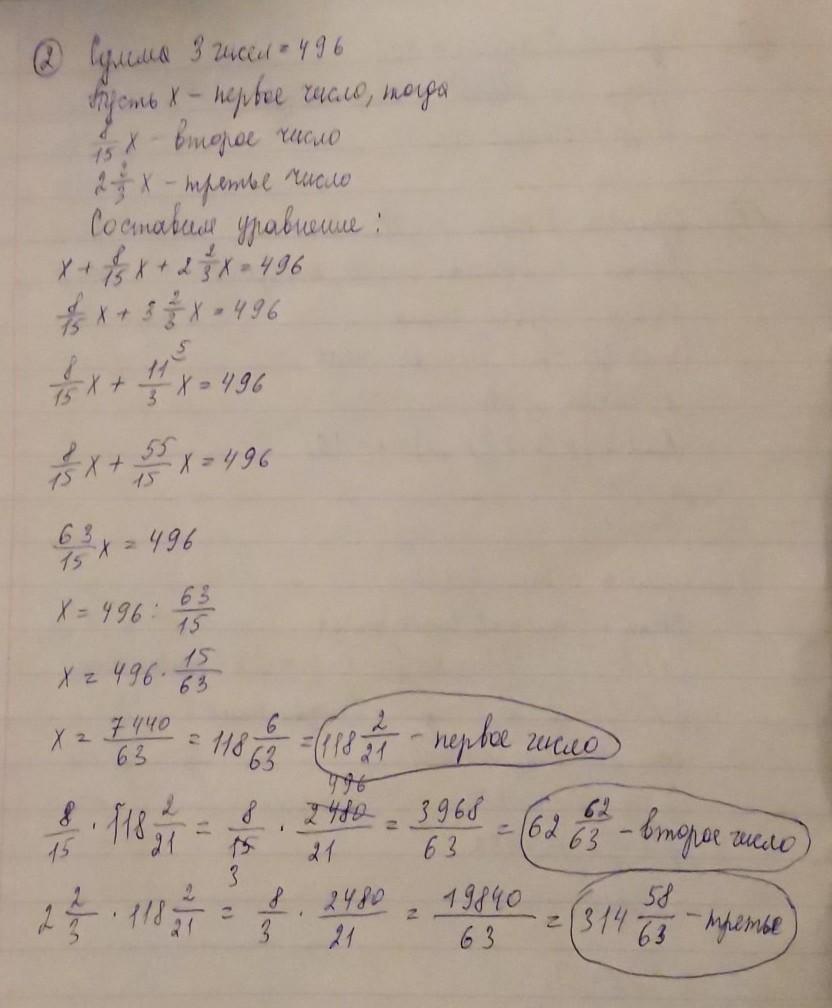 ② Сумма 3 чисел = 496
Пусть x – первое число, тогда
8/15 x – второе число
2 2/3 x – третье число
Составим уравнение:
x + 8/15 x + 2 2/3 x = 496
8/15 x + 3 2/3 x = 496
8/15 x + 11/3 ⁵ x = 496
8/15 x + 55/15 x = 496
63/15 x = 496
x = 496 : 63/15
x = 496 · 15/63
x = 7440/63 = 118 6/63 = 118 2/21 – первое число
496
8/15 · 118 2/21 = 8/15 · 2480/21 = 3968/63 = 62 62/63 – второе число
3
2 2/3 · 118 2/21 = 8/3 · 2480/21 = 19840/63 = 314 58/63 – третье